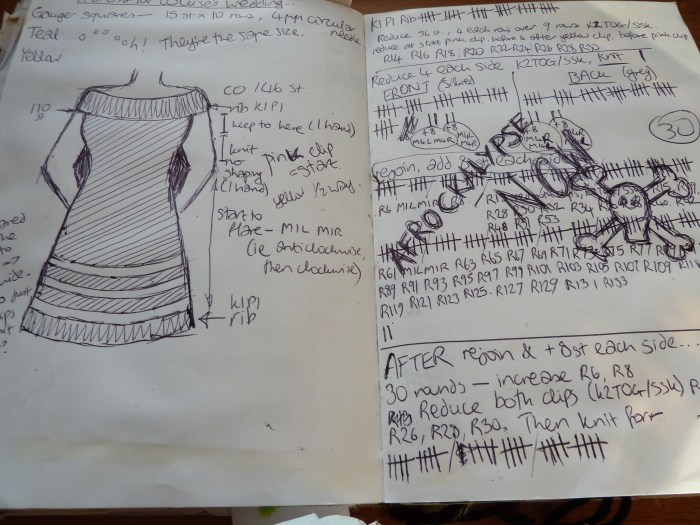 for Louise's wedding...
Gauge squares - 15 st x 10 rows, 4mm circular needle
Teal oh! They're the same size.
Yellow
CO 146 st.
110 st
rib K1P1
keep to here (1 hand)
knit no shaping (1 hand)
pink clip = start.
yellow 1/2 way.
start to flare - M1L M1R
(ie anticlockwise, then clockwise)
K1P1
rib
K1P1 Rib
Reduce 36 st, 4 each row over 9 rows K2TOG/SSK
reduce at start pink clip, before & after yellow clip, before pink clip
R14 R16 R18 R20 R22 R24 R26 R28 R30
Reduce 4 each side K2TOG/SSK, knit 1
FRONT (silver)
BACK (grey)
+8 +8 M1L M1R
30
rejoin, add 8 each side
AFROCKALYPSE
NOW
R6 M1L M1R
R28 R30 R32 R34
R48 R51 R53
R61 M1L M1R R63 R65 R67 R69 R71 R73 R75 R77
R89 R91 R93 R95 R97 R99 R101 R103 R105 R107 R109
R119 R121 R123 R125 R127 R129 R131 R133
AFTER rejoin & +8st each side...
30 rounds - increase R6, R8
Reduce both clips (K2TOG/SSK) R
R26, R28, R30. Then knit for